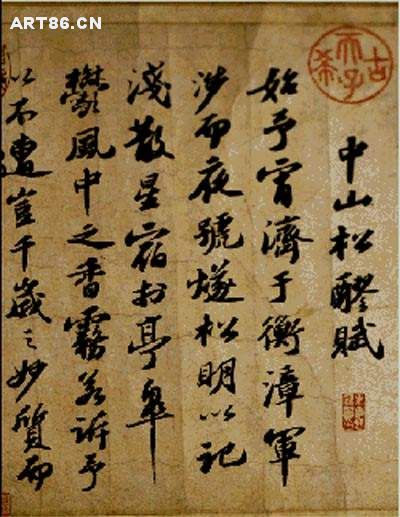 ART86.CN
古希天子
中山松醪賦
始予宵濟于衡漳軍
涉而夜號燧松明以記
淺散星宿於亭皋
鬱風中之香霧若訴予
以不遭豈千歲之妙質而